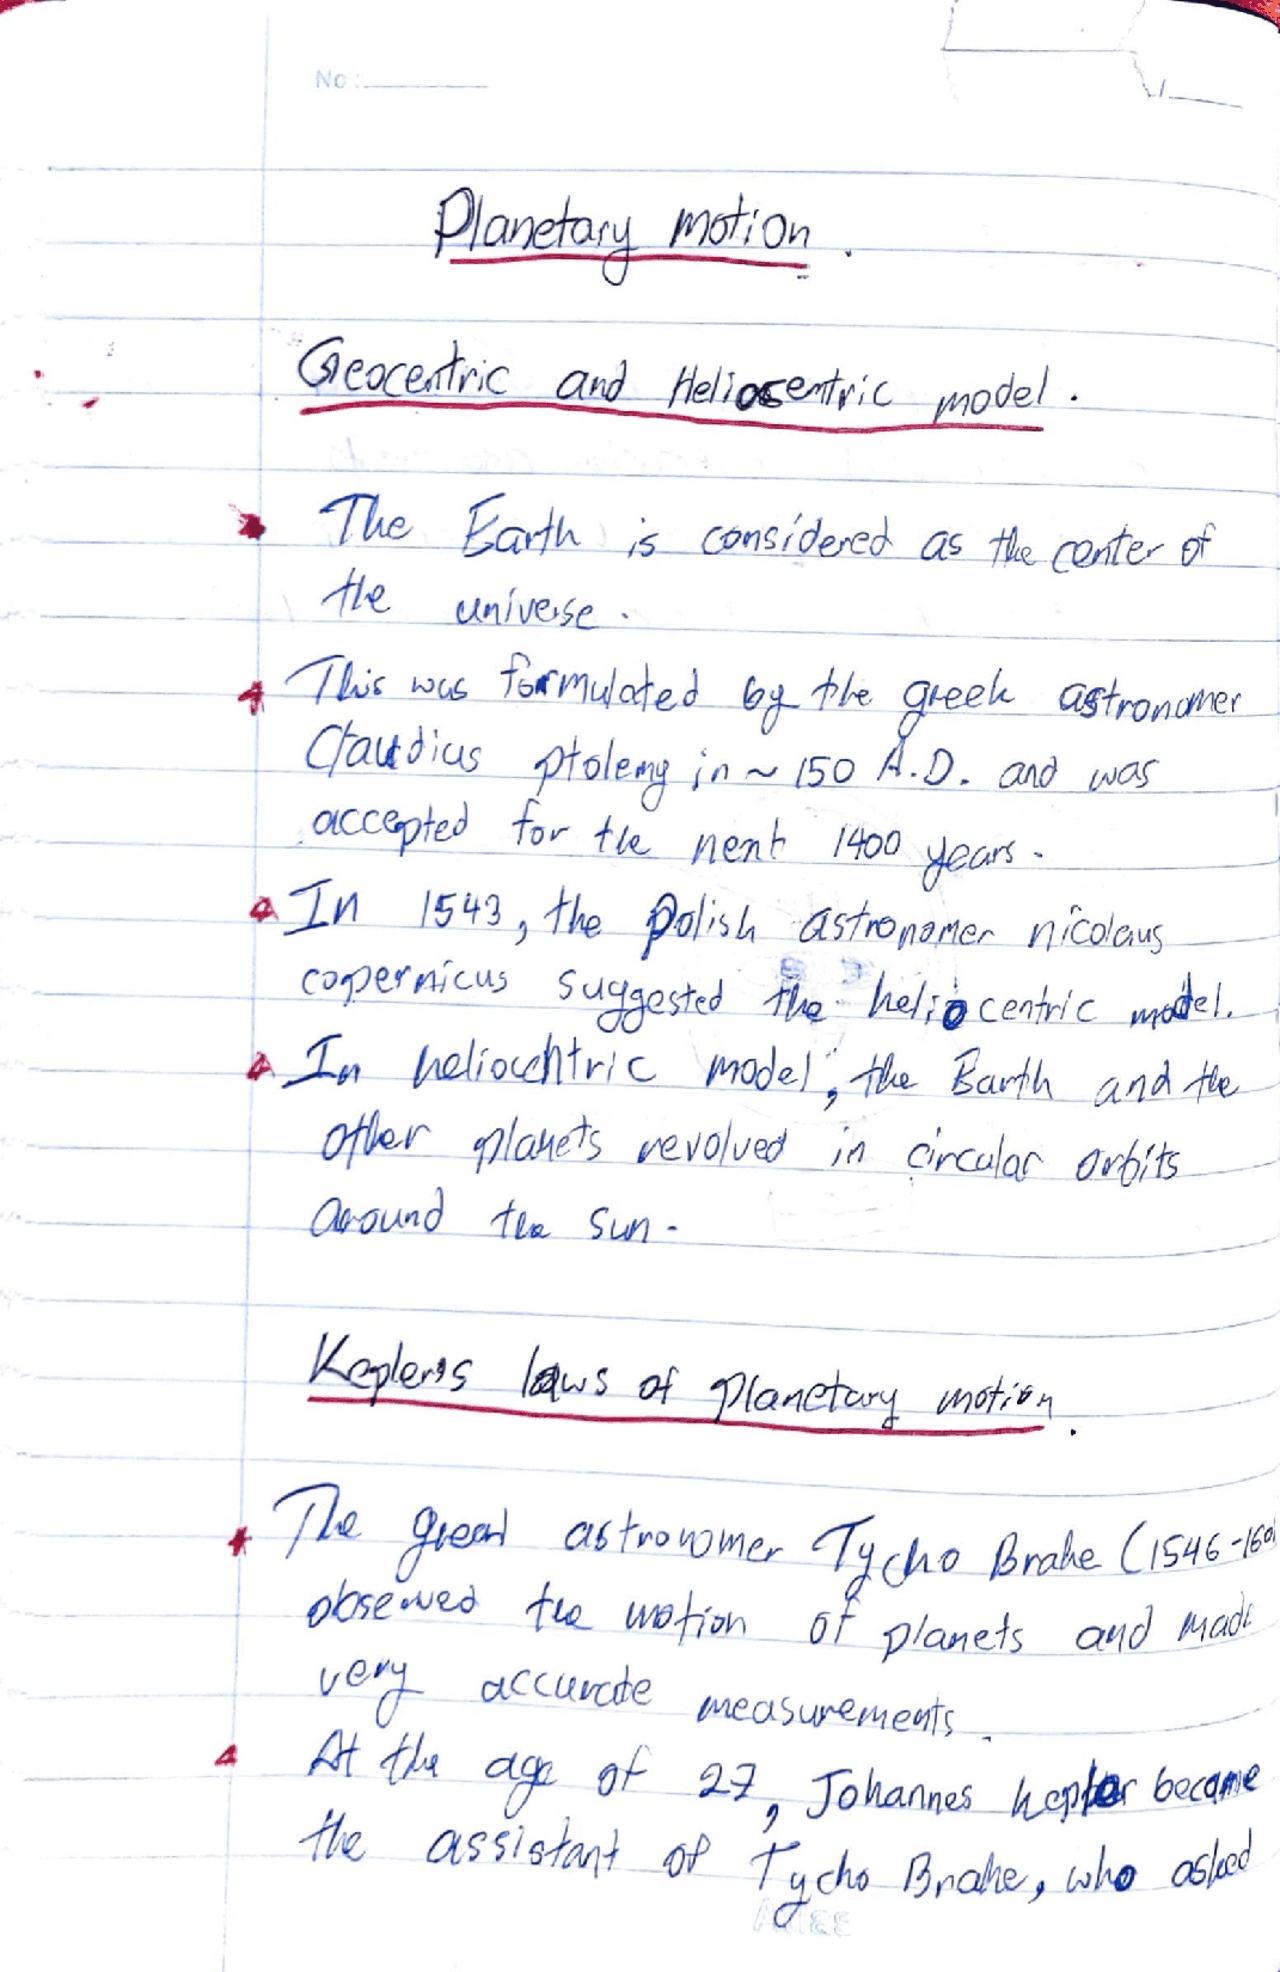 No:
Planetary motion.
Geocentric and Heliocentric model.
The Earth is considered as the center of
the universe.
This was formulated by the greek astronomer
Claudius ptolemy in ~ 150 A.D. and was
accepted for the next 1400 years.
In 1543, the polish astronomer nicolaus
copernicus suggested the heliocentric model.
In heliocentric model, the Earth and the
other planets revolved in circular orbits
around the sun.
Kepler's laws of planetary motion.
The great astronomer Tycho Brahe (1546-160
observed the motion of planets and made
very accurate measurements.
At the age of 27, Johannes kepler became
the assistant of Tycho Brahe, who asked